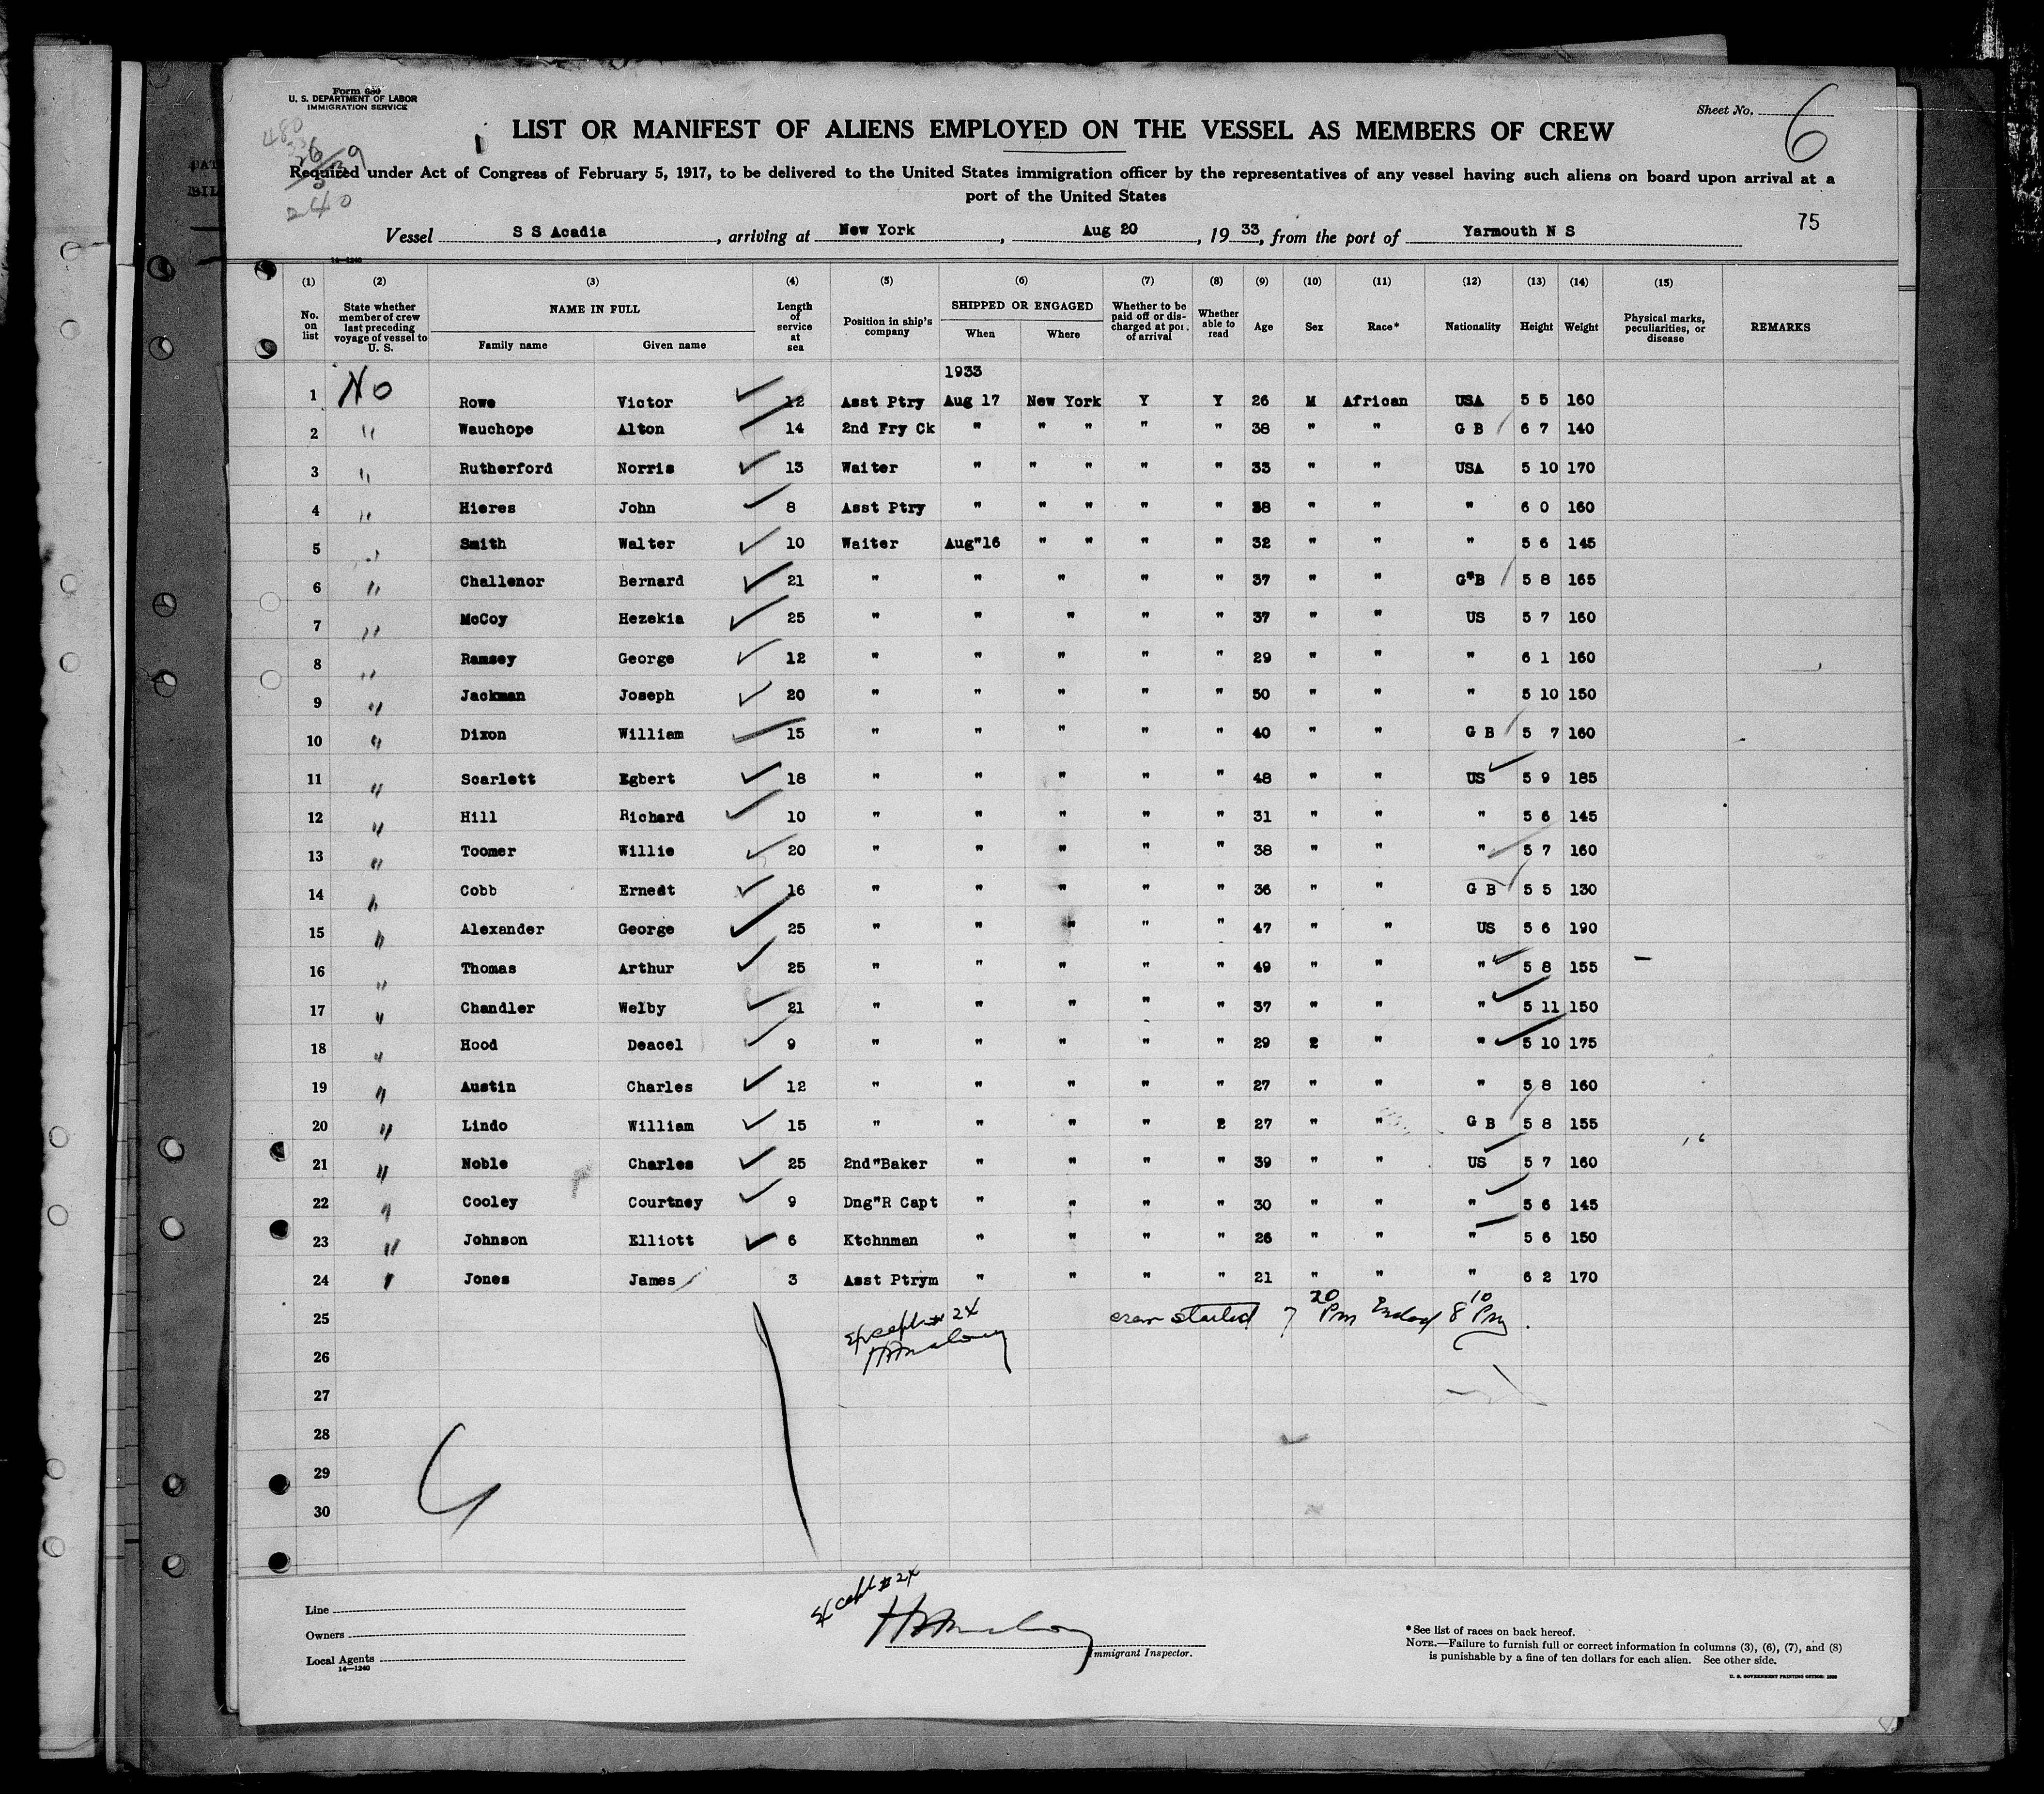 Form 680
U. S. DEPARTMENT OF LABOR
IMMIGRATION SERVICE
Sheet No. 6
LIST OR MANIFEST OF ALIENS EMPLOYED ON THE VESSEL AS MEMBERS OF CREW
Required under Act of Congress of February 5, 1917, to be delivered to the United States immigration officer by the representatives of any vessel having such aliens on board upon arrival at a
port of the United States
240
75
Vessel S S Acadia, arriving at New York, Aug 20, 1933, from the port of Yarmouth N S
14—1240
(1) (2) (3) (4) (5) (6) (7) (8) (9) (10) (11) (12) (13) (14) (15)
No. on list State whether member of crew last preceding voyage of vessel to U. S. NAME IN FULL Family name Given name Length of service at sea Position in ship's company SHIPPED OR ENGAGED When Where Whether to be paid off or discharged at port of arrival Whether able to read Age Sex Race* Nationality Height Weight Physical marks, peculiarities, or disease REMARKS
1933
1 No Rowe Victor 12 Asst Ptry Aug 17 New York Y Y 26 M African USA 5 5 160
2 " Wauchope Alton 14 2nd Fry Ck " " " " " 38 " " G B 6 7 140
3 " Rutherford Norris 13 Waiter " " " " " 33 " " USA 5 10 170
4 " Hieres John 8 Asst Ptry " " " " " 38 " " " 6 0 160
5 " Smith Walter 10 Waiter Aug"16 " " " " 32 " " " 5 6 145
6 " Challenor Bernard 21 " " " " " 37 " " G"B 5 8 165
7 " McCoy Hezekia 25 " " " " " 37 " " US 5 7 160
8 " Ramsey George 12 " " " " " 29 " " " 6 1 160
9 " Jackman Joseph 20 " " " " " 50 " " " 5 10 150
10 " Dixon William 15 " " " " " 40 " " G B 5 7 160
11 " Scarlett Egbert 18 " " " " " 48 " " US 5 9 185
12 " Hill Richard 10 " " " " " 31 " " " 5 6 145
13 " Toomer Willie 20 " " " " " 38 " " " 5 7 160
14 " Cobb Ernedt 16 " " " " " 36 " " G B 5 5 130
15 " Alexander George 25 " " " " " 47 " " US 5 6 190
16 " Thomas Arthur 25 " " " " " 49 " " " 5 8 155
17 " Chandler Welby 21 " " " " " 37 " " " 5 11 150
18 " Hood Deacel 9 " " " " " 29 2 " " 5 10 175
19 " Austin Charles 12 " " " " " 27 " " " 5 8 160
20 " Lindo William 15 " " " " 2 27 " " G B 5 8 155
21 " Noble Charles 25 2nd"Baker " " " " 39 " " US 5 7 160
22 " Cooley Courtney 9 Dng"R Capt " " " " 30 " " " 5 6 145
23 " Johnson Elliott 6 Ktchnman " " " " 26 " " " 5 6 150
24 " Jones James 3 Asst Ptrym " " " " 21 " " " 6 2 170
25 Except # 24 crew started 7 20 Pm Ended 8 10 Pm.
26
27
28
29
30
Except # 24
Line
Owners
Local Agents
14—1240
Immigrant Inspector.
* See list of races on back hereof.
NOTE.—Failure to furnish full or correct information in columns (3), (6), (7), and (8)
is punishable by a fine of ten dollars for each alien. See other side.
U. S. GOVERNMENT PRINTING OFFICE